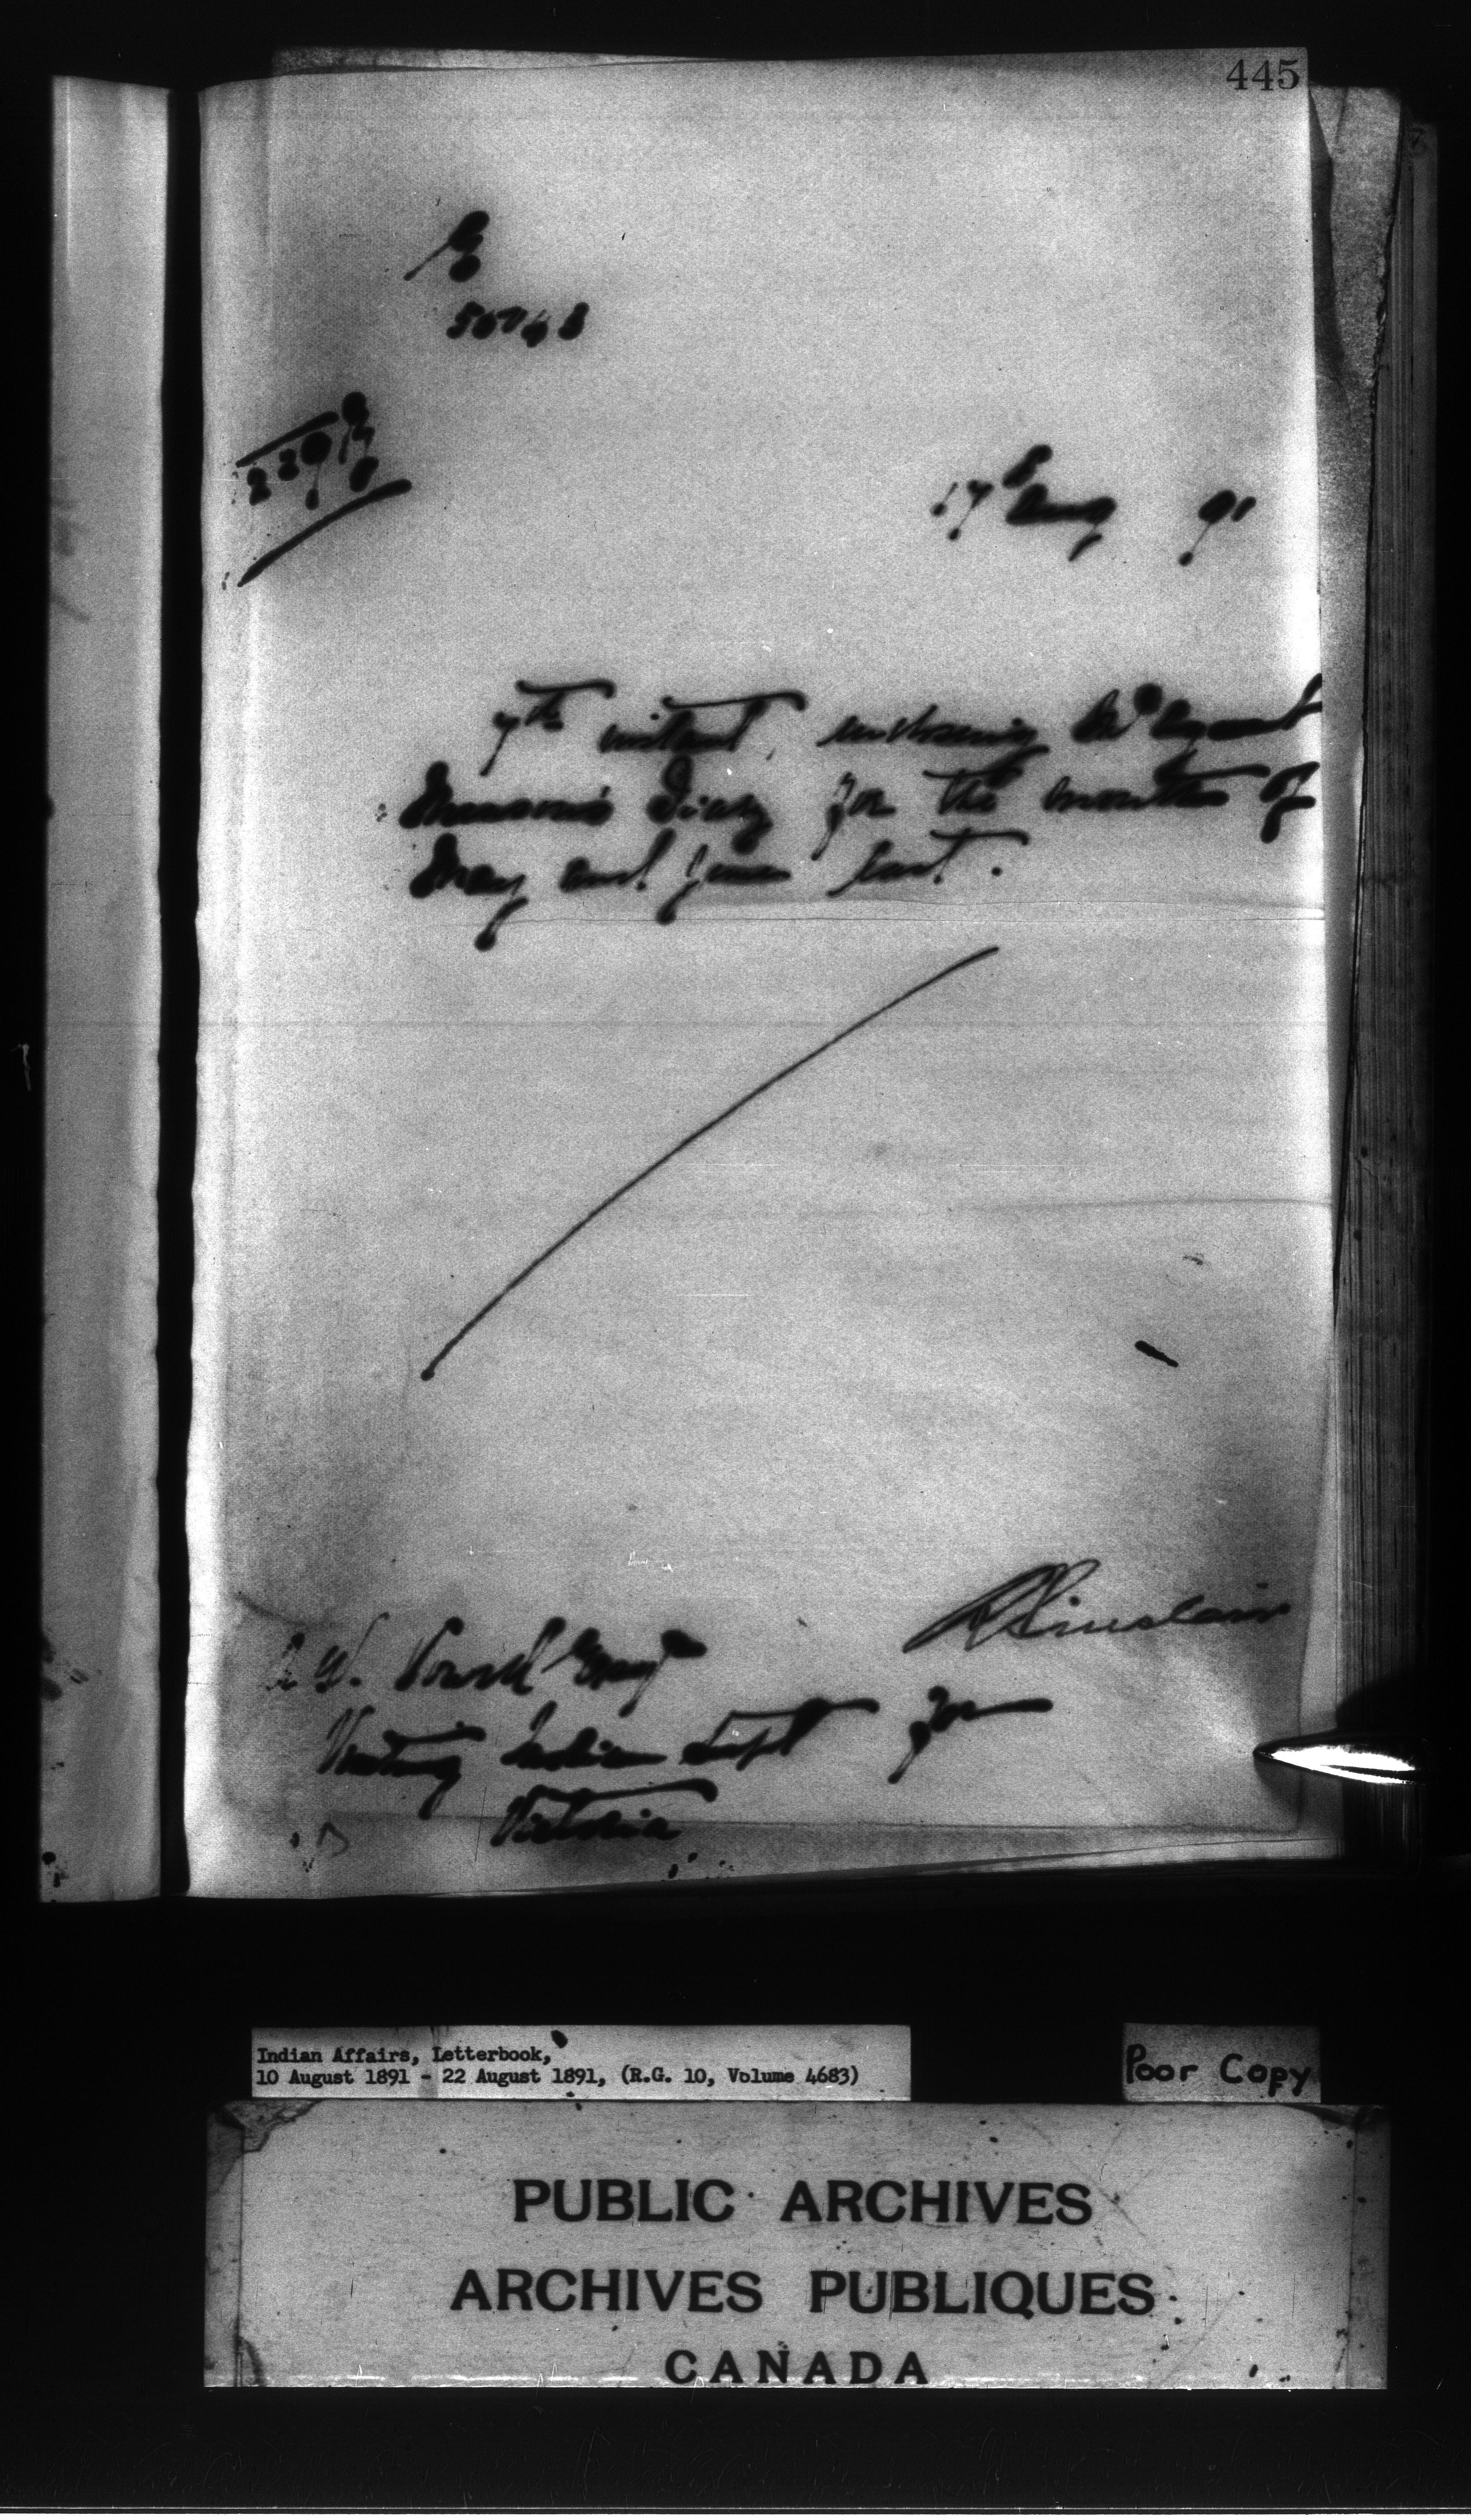 445
17th Aug 91
7th instant, enclosing
Diary for the months of
May and June last.
W. Powell Esqr
R Sinclair
Visiting Indian Supt for
Victoria
Indian Affairs, Letterbook,
10 August 1891 - 22 August 1891, (R.G. 10, Volume 4683)
Poor Copy
PUBLIC ARCHIVES
ARCHIVES PUBLIQUES
CANADA